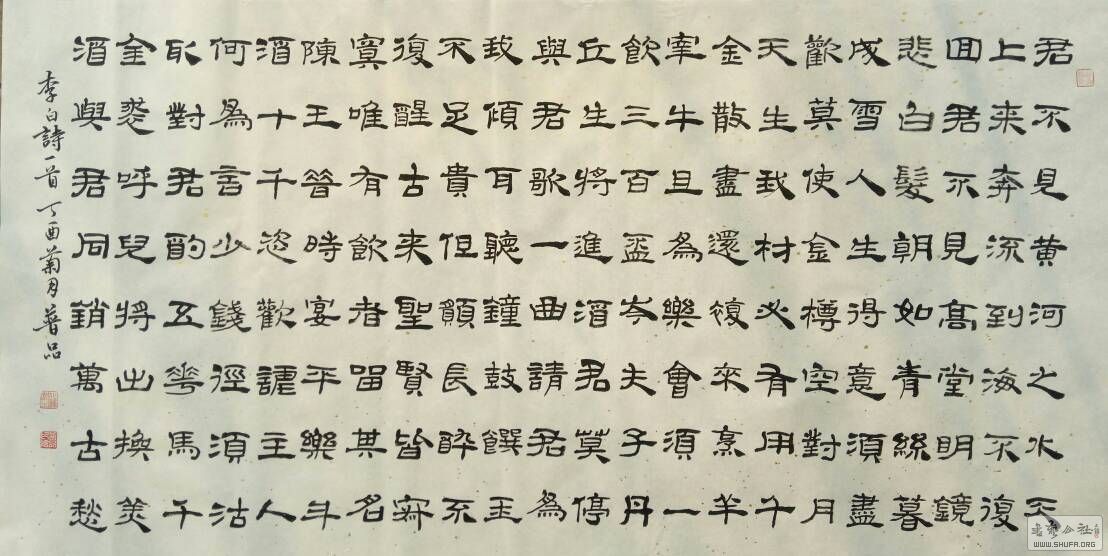 君不見黄河之水天
上来奔流到海不復
回君不見高堂明鏡
悲白髮朝如青絲暮
成雪人生得意須盡
歡莫使金樽空對月
天生我材必有用千
金散盡還復來烹羊
宰牛且為樂會須一
飲三百盃岑夫子丹
丘生將進酒君莫停
與君歌一曲請君為
我傾耳聽鐘鼓饌玉
不足貴但願長醉不
復醒古来聖賢皆寂
寞唯有飲者留其名
陳王昔時宴平樂斗
酒十千恣歡謔主人
何為言少錢徑須沽
取對君酌五花馬千
金裘呼兒將出換美
酒與君同銷萬古愁
李白詩一首丁酉菊月
WWW.SHUFA.ORG